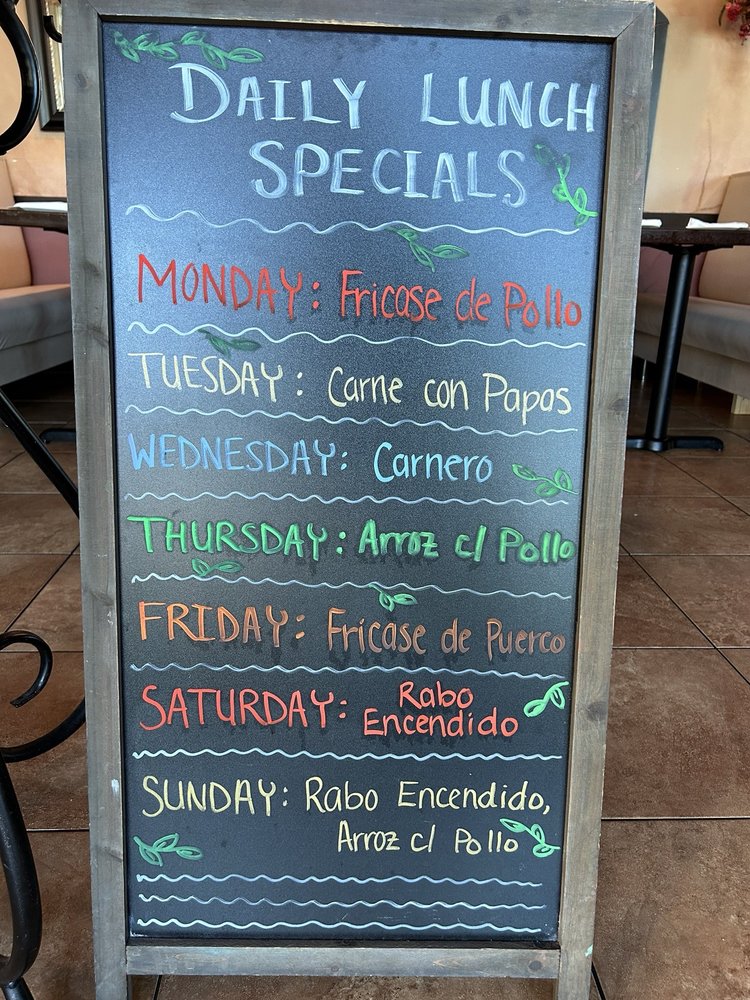 DAILY LUNCH
SPECIALS
MONDAY: Fricase de Pollo
TUESDAY: Carne con Papas
WEDNESDAY: Carnero
THURSDAY: Arroz c/ Pollo
FRIDAY: Fricase de Puerco
SATURDAY: Rabo
Encendido
SUNDAY: Rabo Encendido,
Arroz c/ Pollo